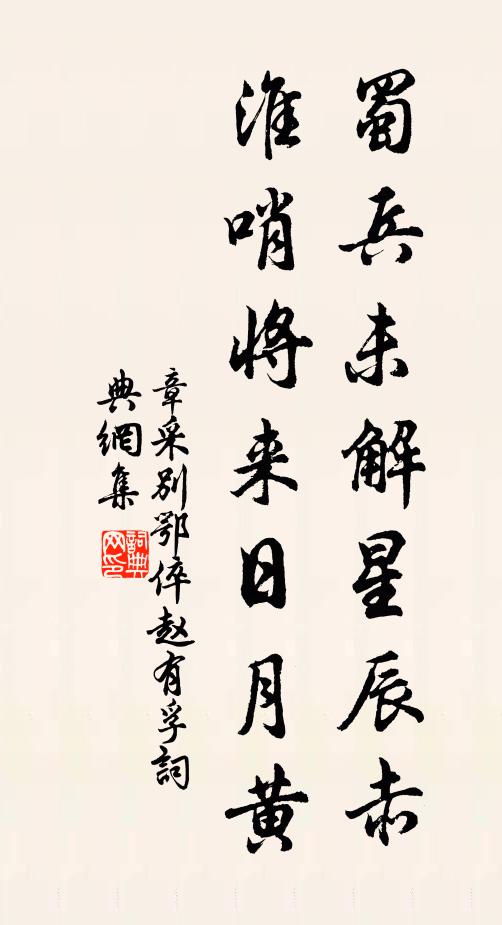 蜀兵未解星辰赤
淮哨将来日月黄
章采别鄂倅赵有孚詞
典網集
詞典
网印